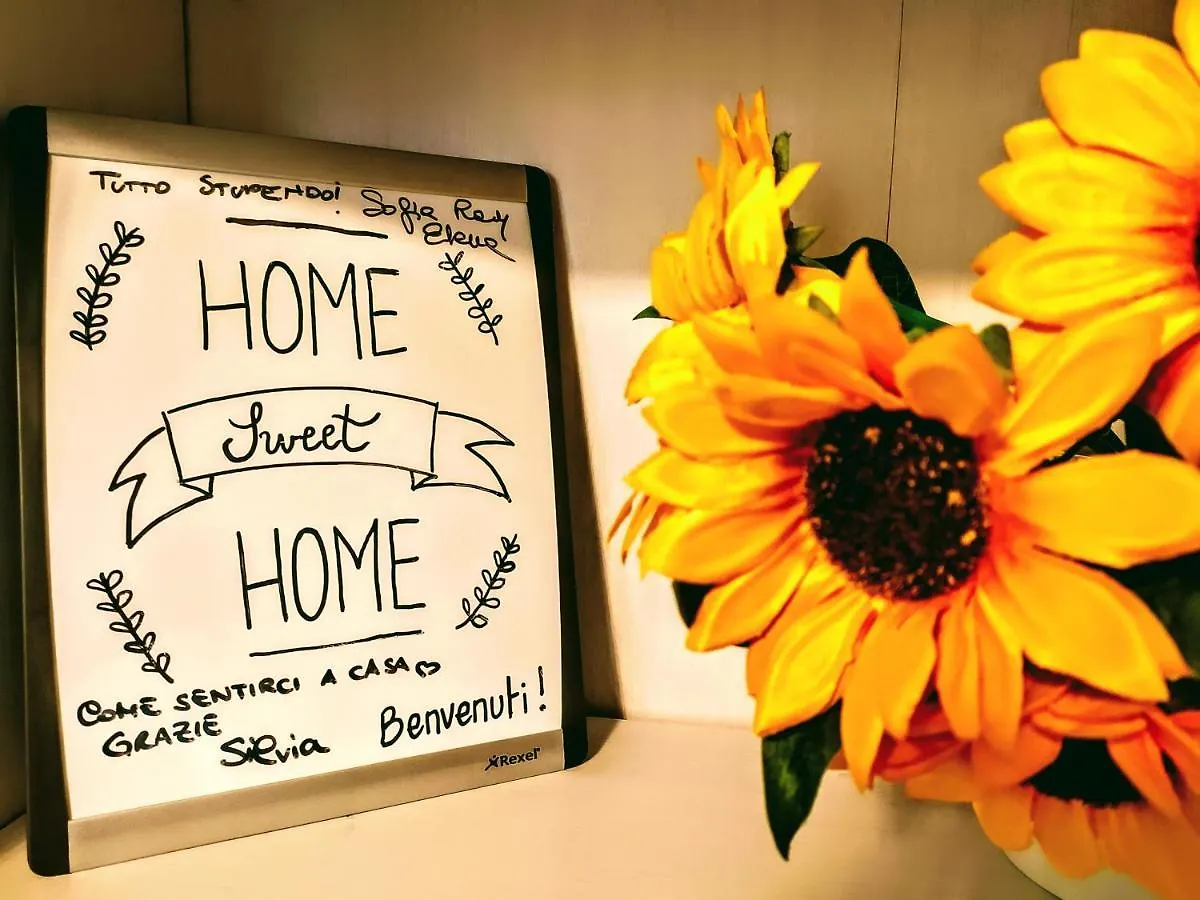 TUTTO STUPENDO! Sofia
HOME
Sweet
HOME
COME SENTIRCI A CASA
GRAZIE
Silvia
Benvenuti!
Rexel